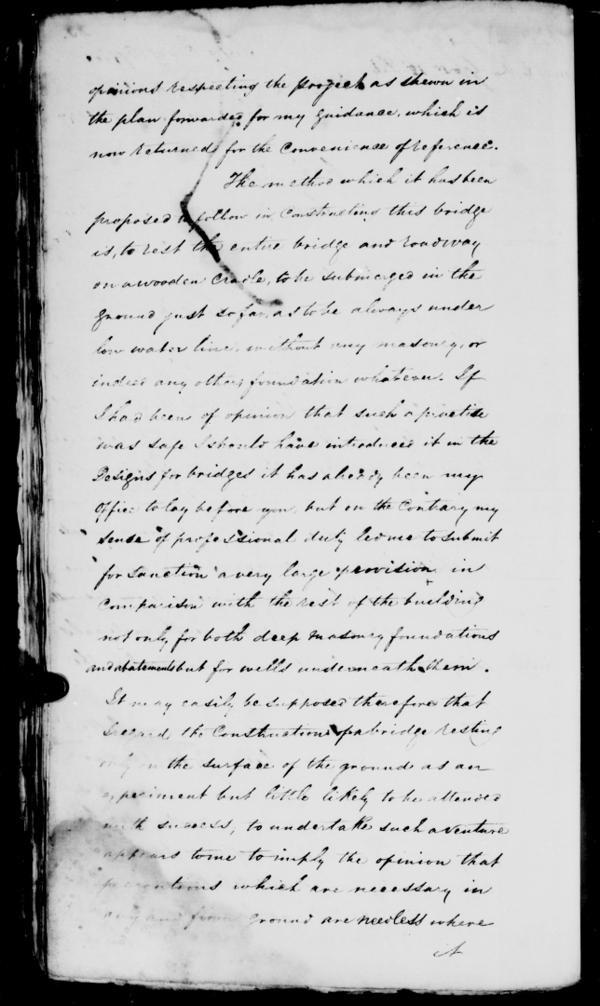 opinions respecting the project as shewn in
the plan forwarded for my guidance, which is
now returned for the Convenience of reference.
The method which it has been
proposed to follow in Constructing this bridge
is, to rest the entire bridge and roadway
on a wooden Cradle, to be submerged in the
ground just so far, as to be always under
low water line, without any masonry, or
indeed any other foundation whatever. If
I had been of opinion that such a practise
was safe I should have introduced it in the
Designs for bridges it has already been my
Office to lay before you, but on the Contrary my
sense of professional duty led me to submit
for sanction a very large provision in
Comparison with the rest of the building
not only for both deep masonry foundations
and abatements but for wells underneath them.
It may easily be supposed therefore that
the Construction of a bridge resting
only on the surface of the ground as an
experiment but little likely to be attended
with success, to undertake such a venture
appears to me to imply the opinion that
precautions which are necessary in
any and firm ground are needless where